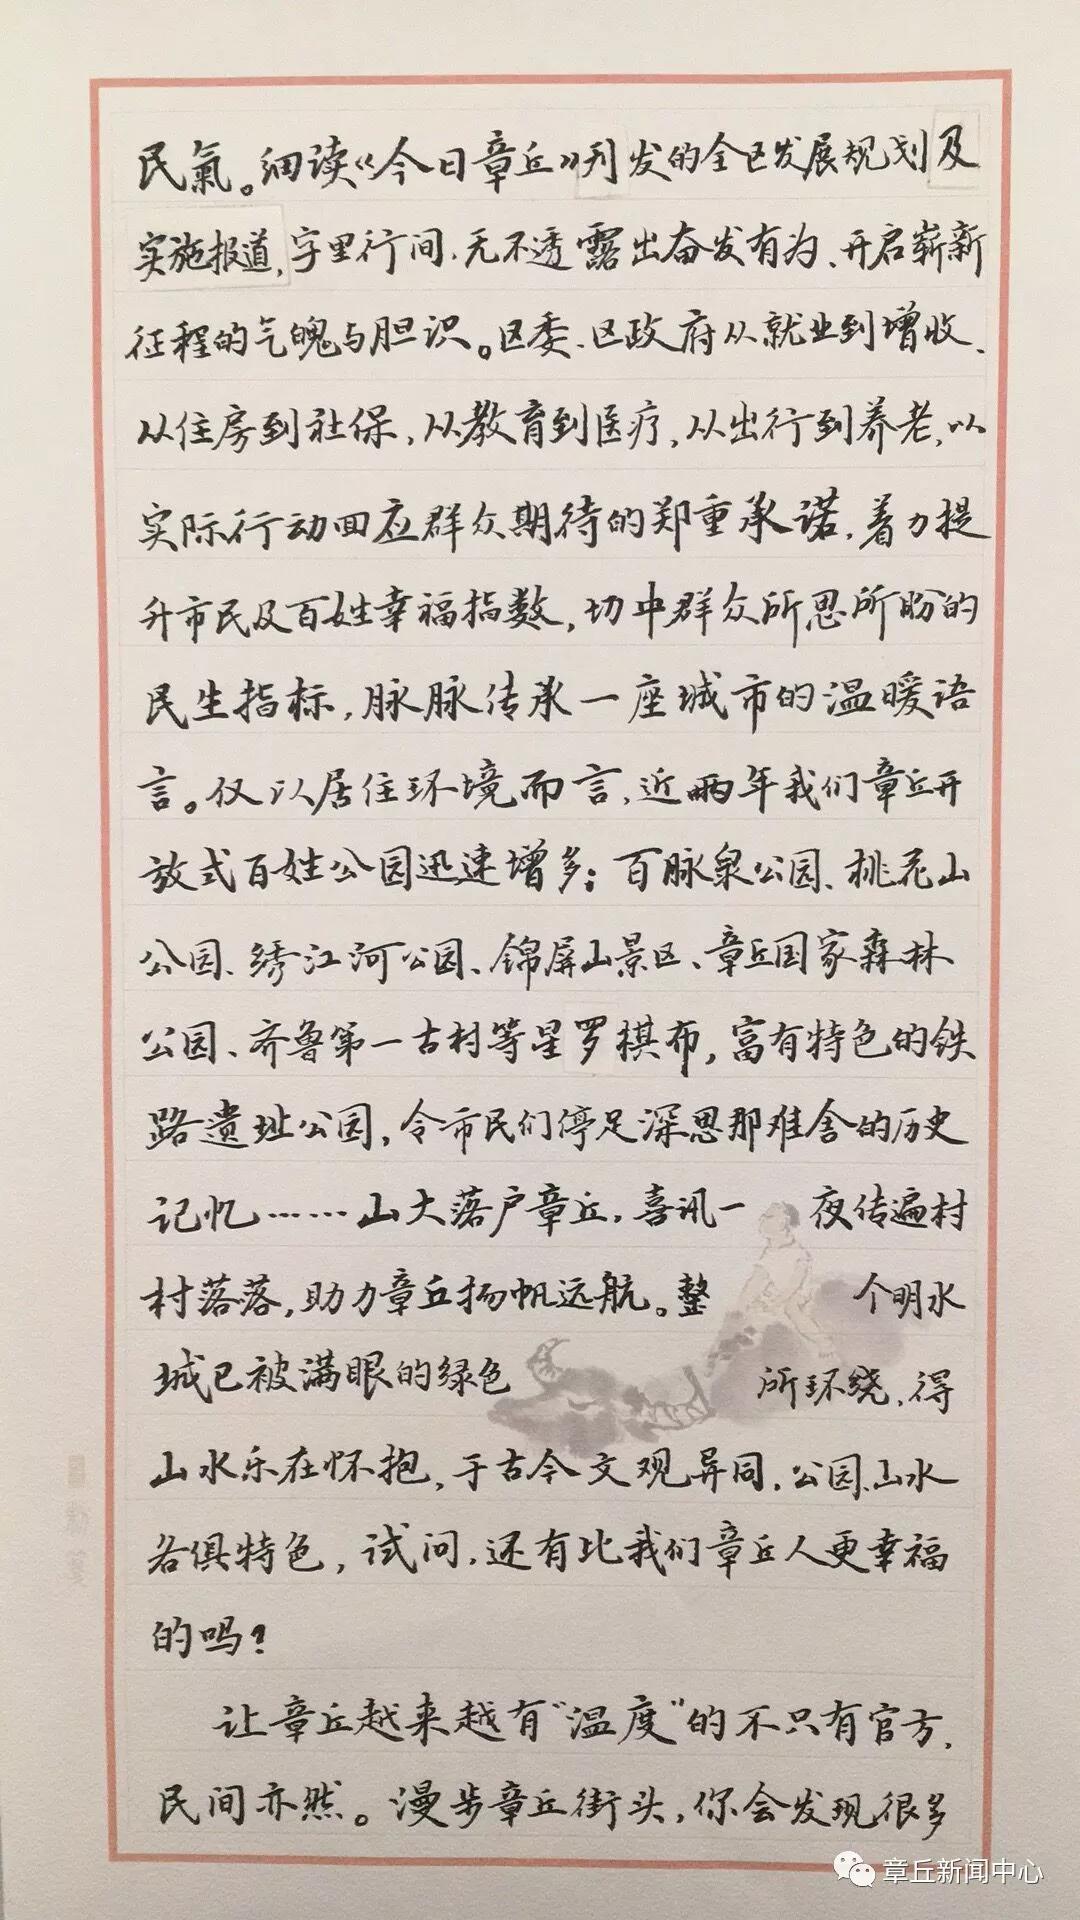 民氣。细读《今日章丘》刋发的全区发展规划及
实施报道，字里行间，无不透露出奋发有为、开启崭新
征程的气魄与胆识。区委、区政府从就业到增收、
从住房到社保，从教育到医疗，从出行到养老，以
实际行动回应群众期待的郑重承诺，着力提
升市民及百姓幸福指数，切中群众所思所盼的
民生指标，脉脉传承一座城市的温暖语
言。仅以居住环境而言，近两年我们章丘开
放式百姓公园迅速增多；百脉泉公园、桃花山
公园、绣江河公园、锦屏山景区、章丘国家森林
公园、齐鲁第一古村等星罗棋布，富有特色的铁
路遗址公园，令市民们停足深思那难舍的历史
记忆……山大落户章丘，喜讯一夜传遍村
村落落，助力章丘扬帆远航。整个明水
城已被满眼的绿色所环绕，得
山水乐在怀抱，于古今文观异同，公园、山水
各俱特色，试问，还有比我们章丘人更幸福
的吗？
让章丘越来越有“温度”的不只有官方，
民间亦然。漫步章丘街头，你会发现很多
章丘新闻中心